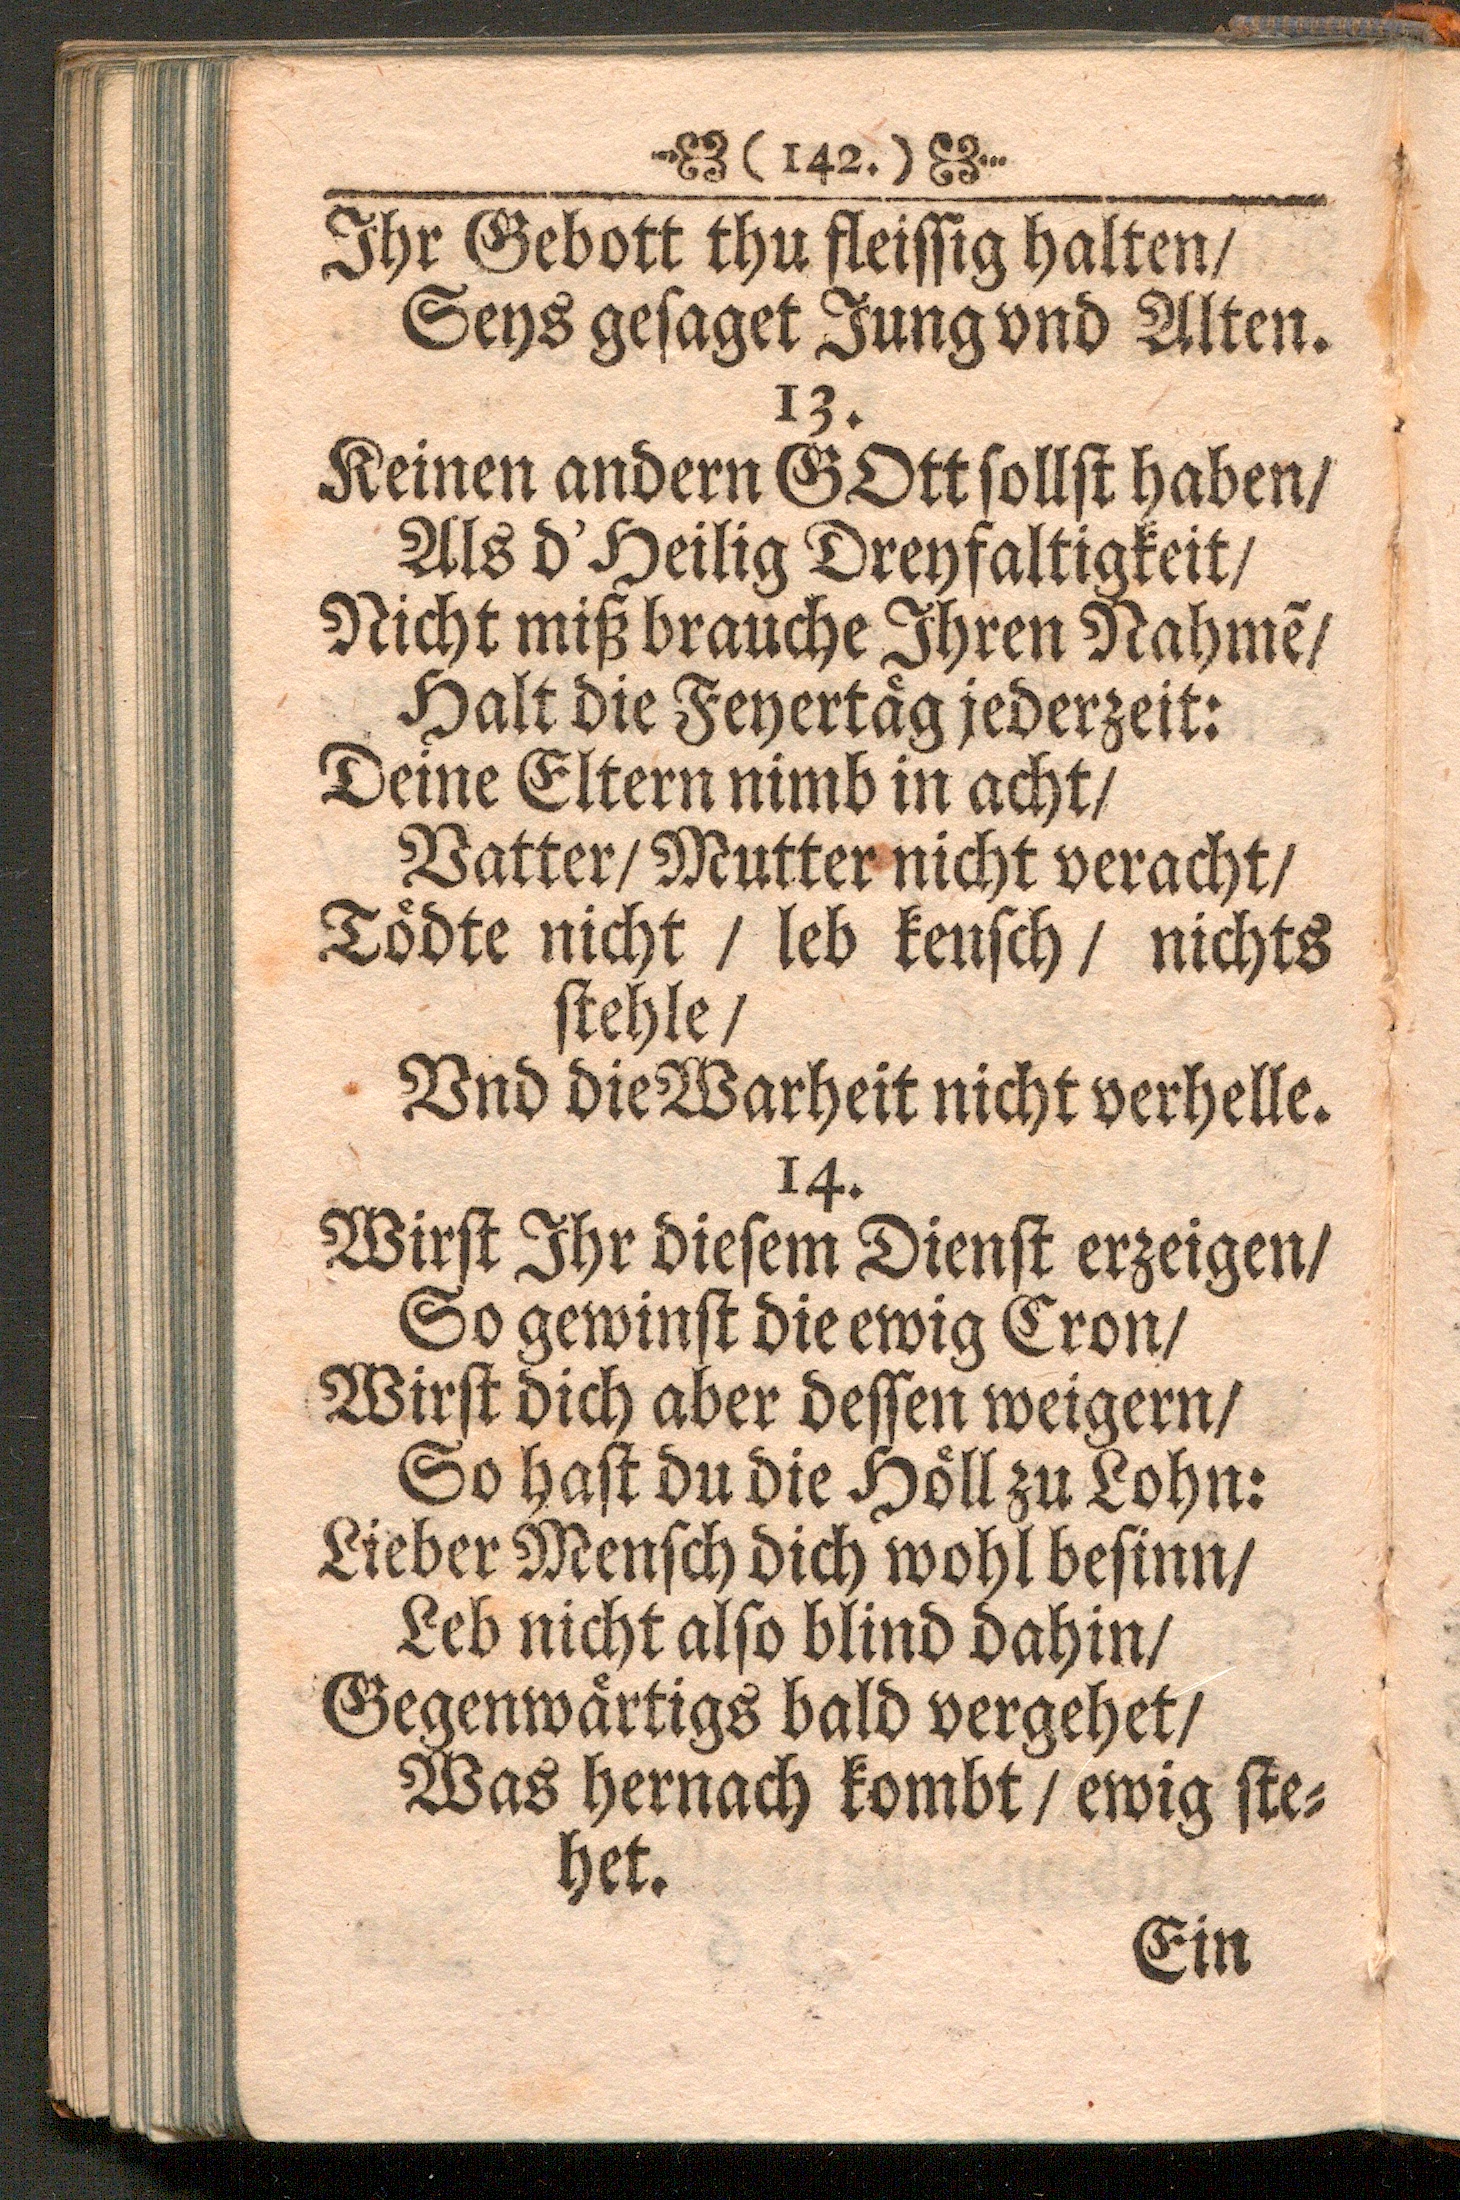 (142.)
Ihr Gebott thu fleiſſig halten/
Seys geſaget Jung vnd Alten.
13.
Keinen andern GOtt ſollſt haben/
Als d' Heilig Dreyfaltigkeit/
Nicht miß brauche Ihren Nahmẽ/
Halt die Feyertaͤg jederzeit:
Deine Eltern nimb in acht/
Vatter/ Mutter nicht veracht/
Toͤdte nicht / leb keuſch / nichts
ſtehle /
Vnd die Warheit nicht verhelle.
14.
Wirſt Ihr dieſem Dienſt erzeigen/
So gewinſt die ewig Cron/
Wirſt dich aber deſſen weigern/
So haſt du die Hoͤll zu Lohn:
Lieber Menſch dich wohl beſinn/
Leb nicht alſo blind dahin/
Gegenwaͤrtigs bald vergehet/
Was hernach kombt / ewig ſte⸗
het.
Ein